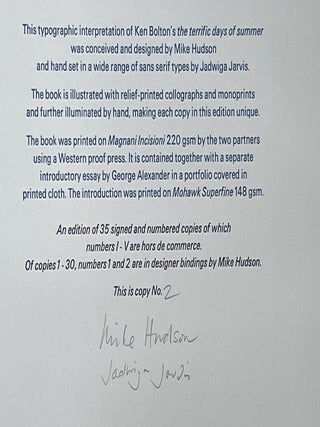 This typographic interpretation of Ken Bolton's the terrific days of summer
was conceived and designed by Mike Hudson
and hand set in a wide range of sans serif types by Jadwiga Jarvis.
The book is illustrated with relief-printed collographs and monoprints
and further illuminated by hand, making each copy in this edition unique.
The book was printed on Magnani Incisioni 220 gsm by the two partners
using a Western proof press. It is contained together with a separate
introductory essay by George Alexander in a portfolio covered in
printed cloth. The introduction was printed on Mohawk Superfine 148 gsm.
An edition of 35 signed and numbered copies of which
numbers I - V are hors de commerce.
Of copies 1 - 30, numbers 1 and 2 are in designer bindings by Mike Hudson.
This is copy No. 2
Mike Hudson
Jadwiga Jarvis